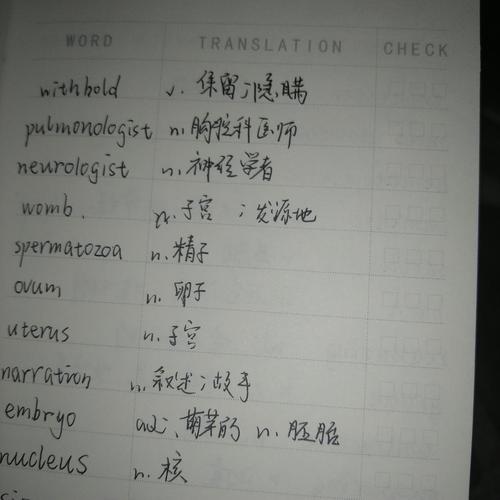 WORD TRANSLATION CHECK
withbold v. 保留；隐瞒
pulmonologist n. 胸腔科医师
neurologist n. 神经学者
womb. n. 子宫；发源地
spermatozoa n. 精子
ovum n. 卵子
uterus n. 子宫
narration n. 叙述；故事
embryo adj. 萌芽的 n. 胚胎
nucleus n. 核